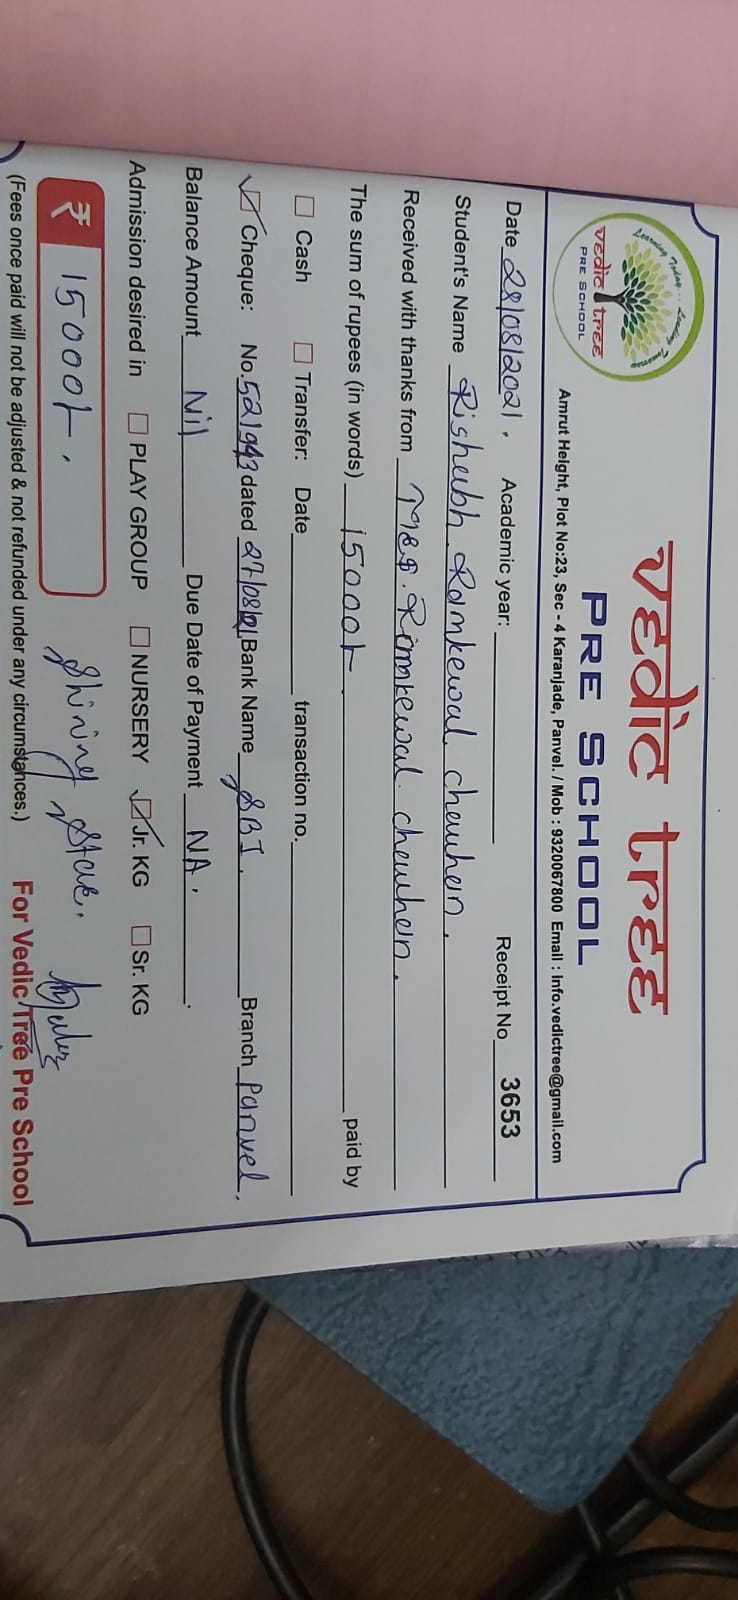 Learning Today... Leading Tomorrow
vedic tree
PRE SCHOOL
vedic tree
PRE SCHOOL
Amrut Height, Plot No:23, Sec - 4 Karanjade, Panvel. / Mob : 9320067800 Email : Info.vedictree@gmail.com
Date 28/08/2021. Academic year: Receipt No 3653
Student's Name Rishabh Ramkewal chauhan.
Received with thanks from Mrs. Ramkewal chauhan.
The sum of rupees (in words) 15000/-. paid by
Cash Transfer: Date transaction no.
Cheque: No. 521943 dated 27/08/21 Bank Name SBI. Branch Panvel.
Balance Amount Nil Due Date of Payment NA.
Admission desired in PLAY GROUP NURSERY Jr. KG Sr. KG
₹ 15000/-. Shining Star.
(Fees once paid will not be adjusted & not refunded under any circumstances.) For Vedic Tree Pre School